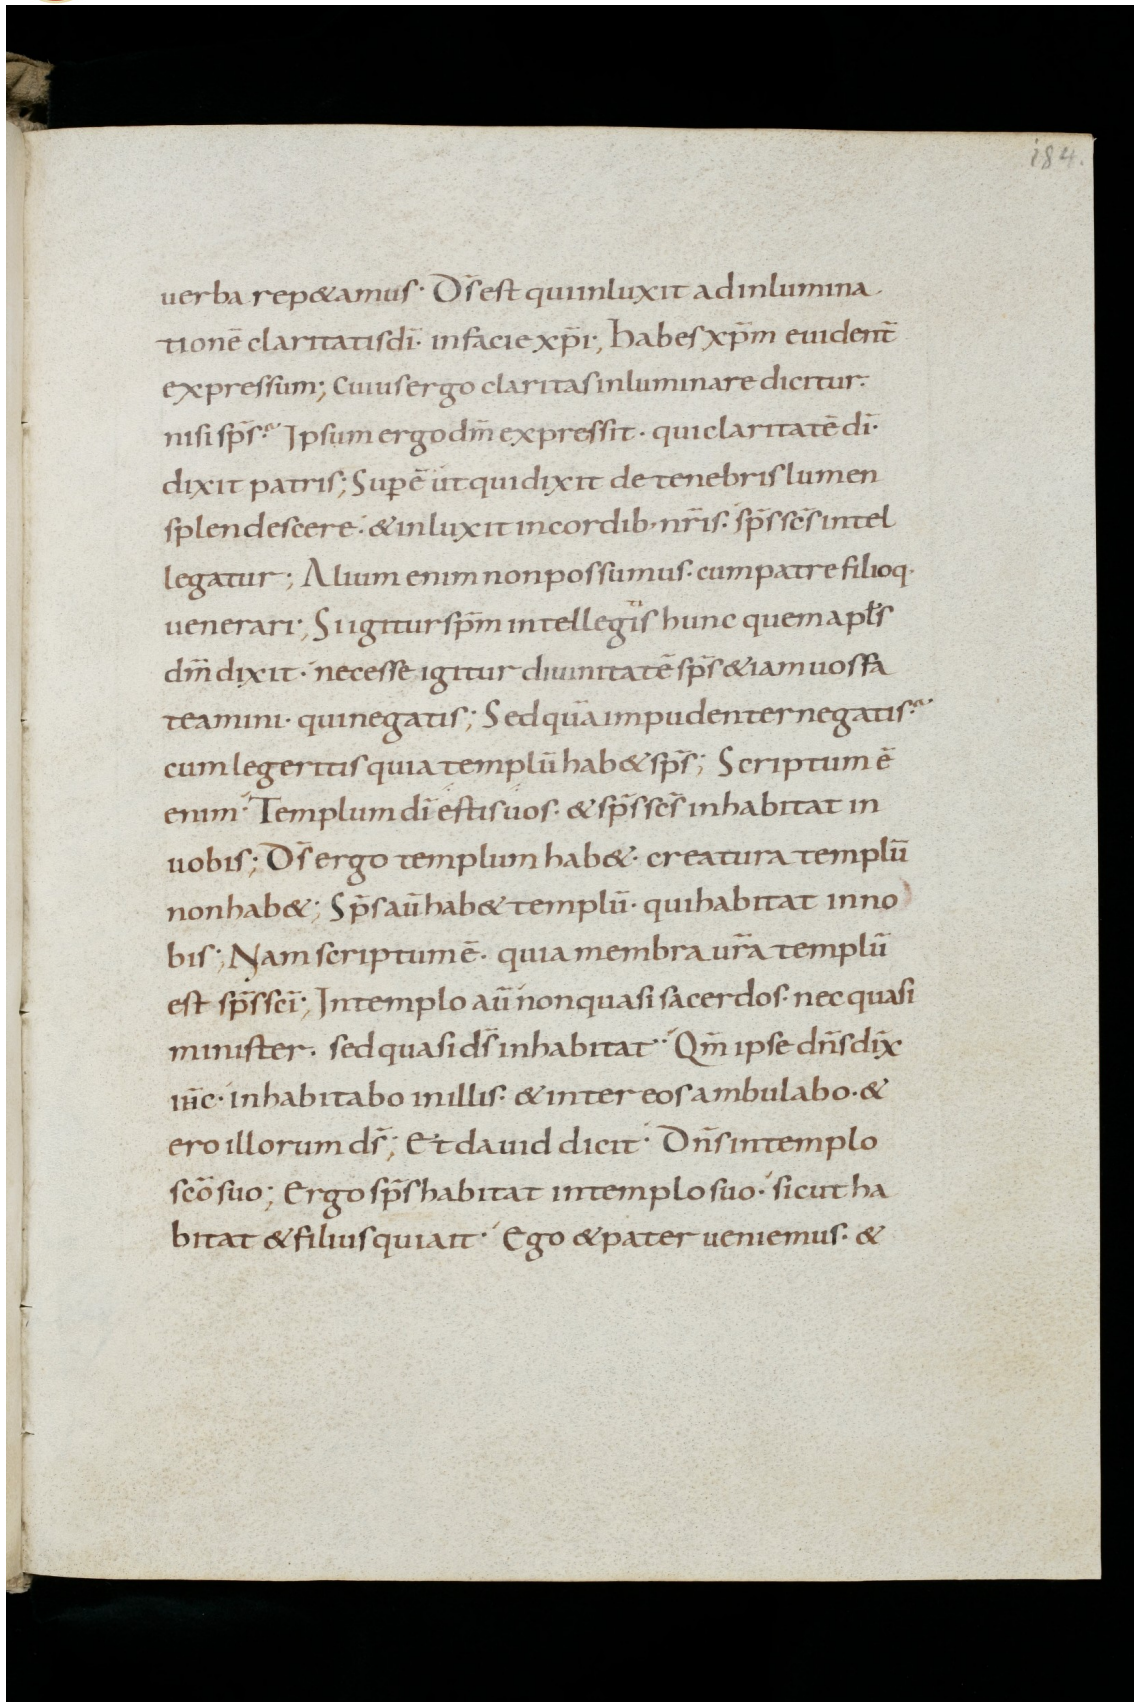 184.
uerba rep&amus· Ds̄ est qui inluxit ad inlumina
tionē claritatis dī· in facie xp̄i; habes xp̄m euident̄
expressum; Cuius ergo claritas inluminare dicitur·
nisi sp̄s? Ipsum ergo dm̄ expressit· qui claritatē dī·
dixit patris; Sup̄ ē ut qui dixit de tenebris lumen
splendescere· & inluxit in cordib· nr̄is· sp̄s sc̄s intel
legatur; Alium enim non possumus· cum patre filioq·
uenerari; Si igitur sp̄m intellegis hunc quem apl̄s
dm̄ dixit· necesse igitur diuinitatē sp̄s &iam uos fa
teamini· qui negatis; Sed qua impudenter negatis?
cum legeritis quia templū hab& sp̄s; Scriptum ē
enim· Templum dī estis uos· & sp̄s sc̄s inhabitat in
uobis; Ds̄ ergo templum hab&· creatura templū
non hab&; Sp̄s aū hab& templū· qui habitat in no
bis; Nam scriptum ē· quia membra ur̄a templū
est sp̄s sc̄i; In templo aū non quasi sacerdos· nec quasi
minister· sed quasi ds̄ inhabitat· Qm̄ ipse dn̄s dix̄
iūc· inhabitabo in illis· & inter eos ambulabo· &
ero illorum ds̄; Et dauid dicit· Dn̄s in templo
sc̄o suo; Ergo sp̄s habitat in templo suo· sicut ha
bitat & filius qui ait· Ego & pater ueniemus· &